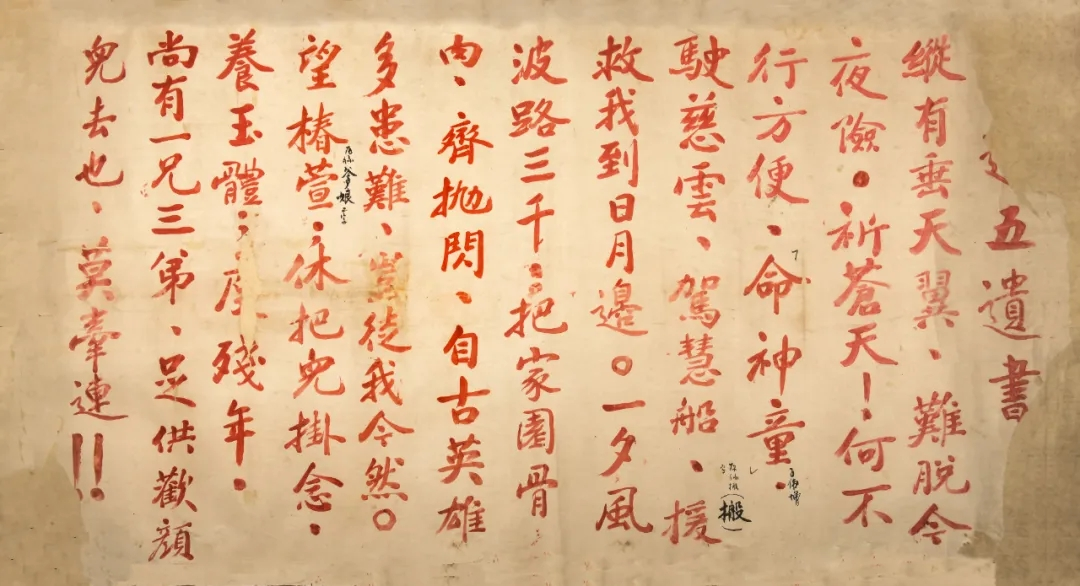 五遺書
縱有垂天翼、難脫今
夜險。祈蒼天！何不
行方便、命神童、
駛慈雲、駕慧船、援
（搬）
救我到日月邊。一夕風
波路三千、把家園骨
肉、齊拋閃、自古英雄
多患難、豈徒我今然。
望椿萱、休把兒掛念、
養玉體、度殘年。
尚有一兄三弟、足供歡顏
兒去也、莫牽連!!